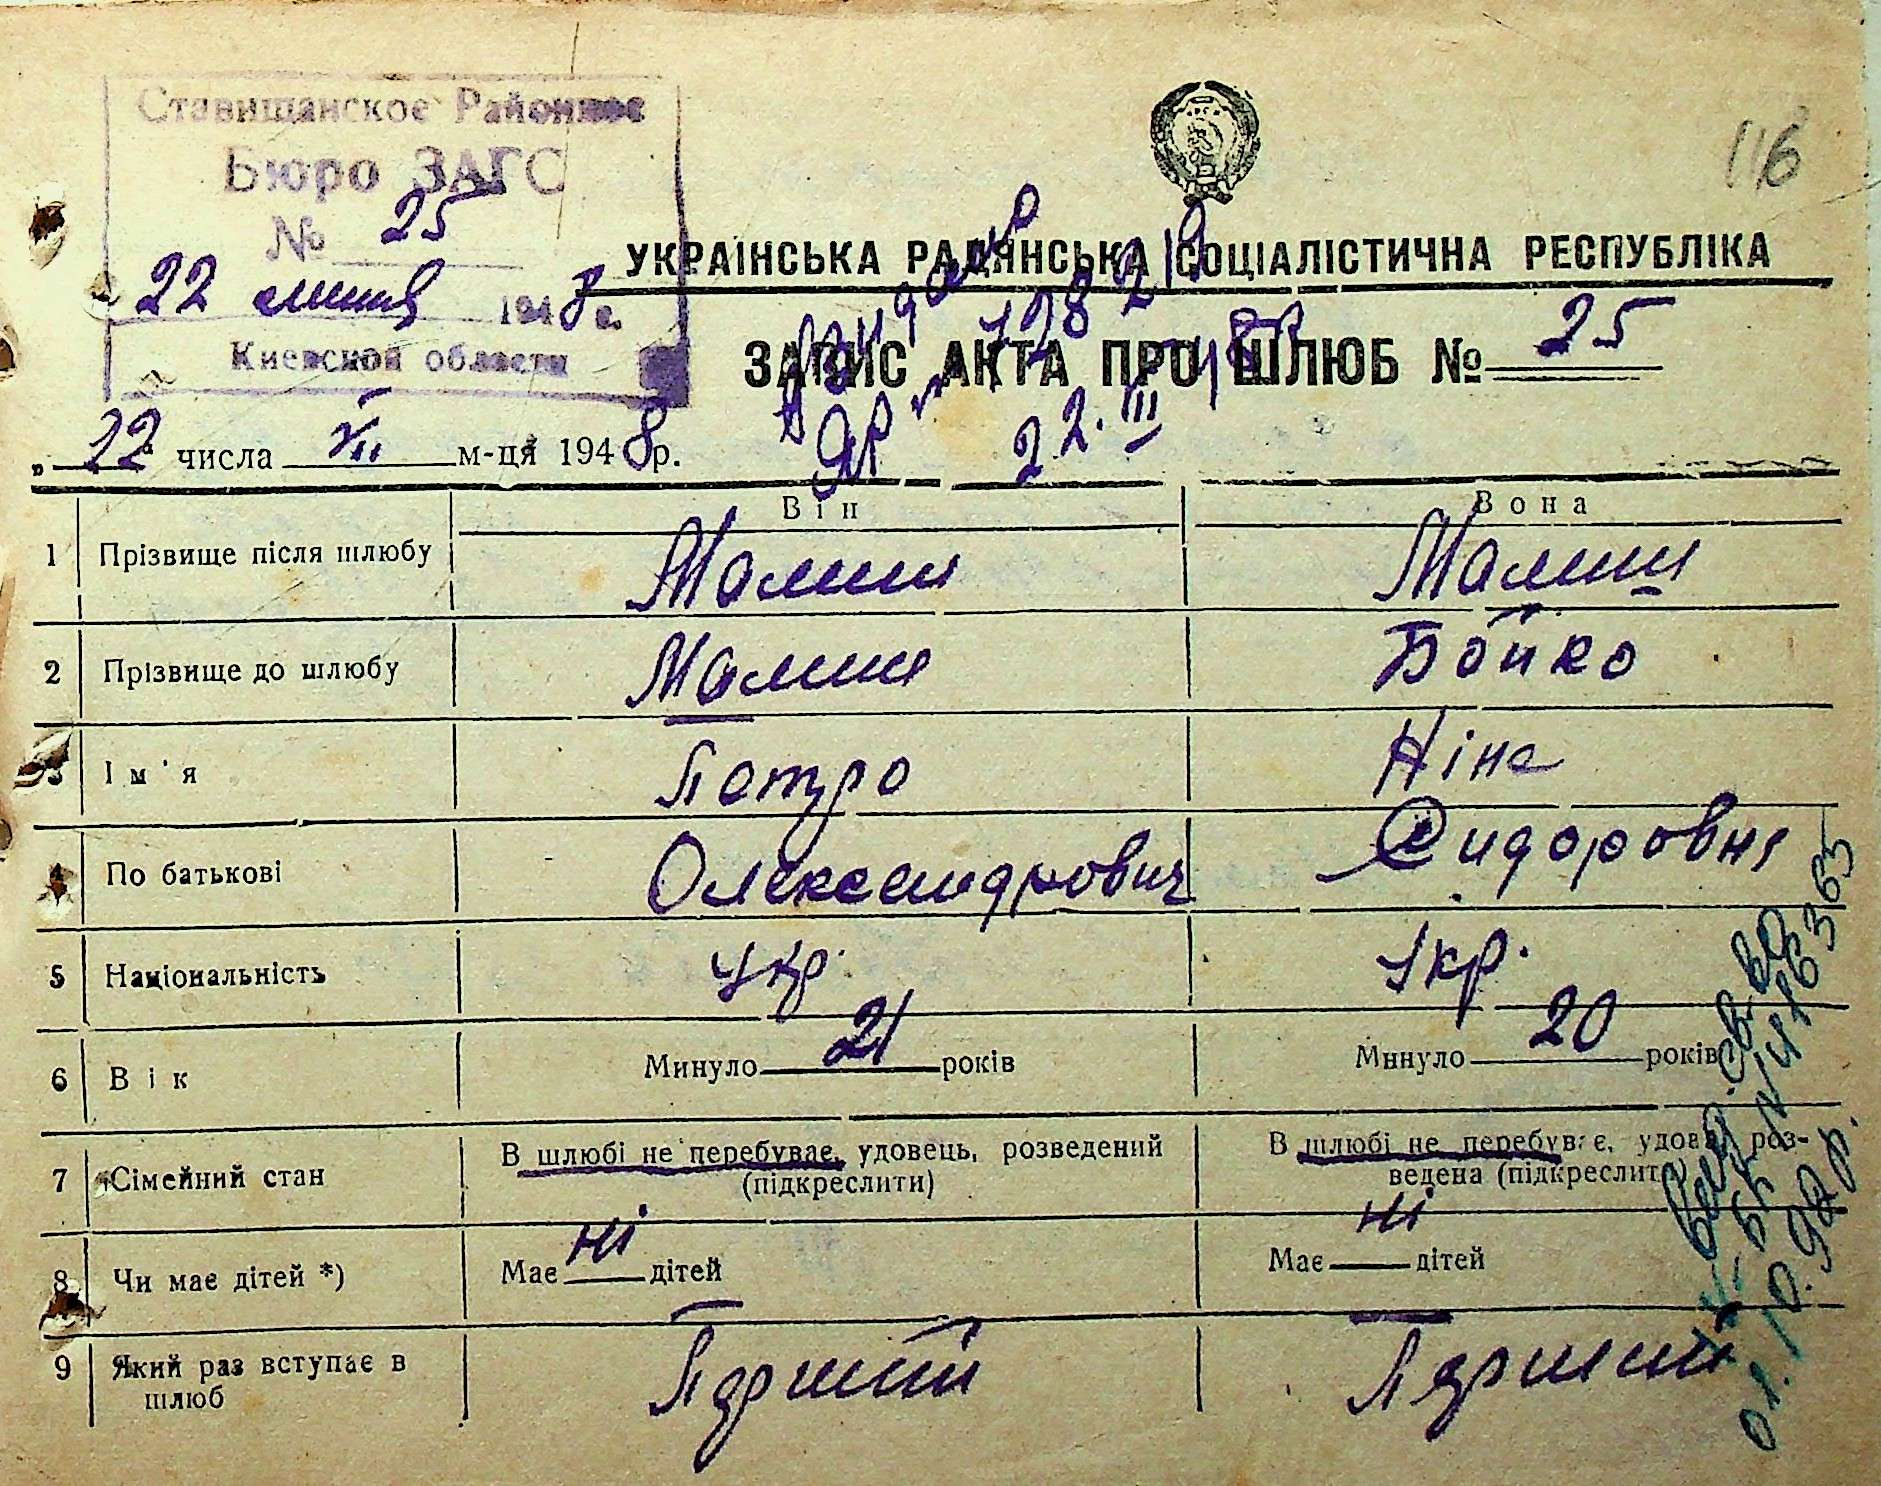 Ставищанское Районное
Бюро ЗАГС
№ 25
22 липня 1948 г.
Киевской области
116
УКРАЇНСЬКА РАДЯНСЬКА СОЦІАЛІСТИЧНА РЕСПУБЛІКА
ЗАПИС АКТА ПРО ШЛЮБ № 25
22. III
„ 22 " числа VII м-ця 1948 р.
Він Вона
1 Прізвище після шлюбу Малиш Малиш
2 Прізвище до шлюбу Малиш Бойко
3 Ім'я Петро Ніна
4 По батькові Олександрович Сидоровна
5 Національність укр. Укр.
6 Вік Минуло 21 років Минуло 20 років
7 Сімейний стан В шлюбі не перебуває, удовець, розведений (підкреслити) В шлюбі не перебуває, удова, роз-
ведена (підкреслити)
8 Чи має дітей *) Має ні дітей Має ні дітей
9 Який раз вступає в шлюб Перший Перший